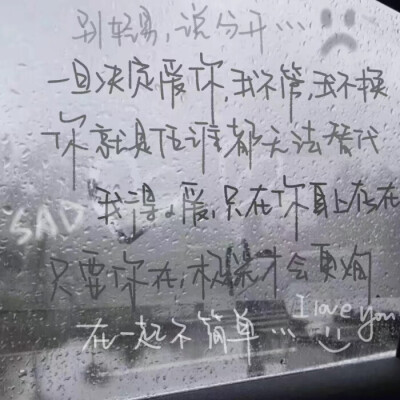 别轻易，说分开…
一旦决定爱你，我不管，我不换
你就是任谁都无法替代
SAD
我得爱，只在你身上存在
只要你在，枫缘才会更绚
I love you
在一起不简单…